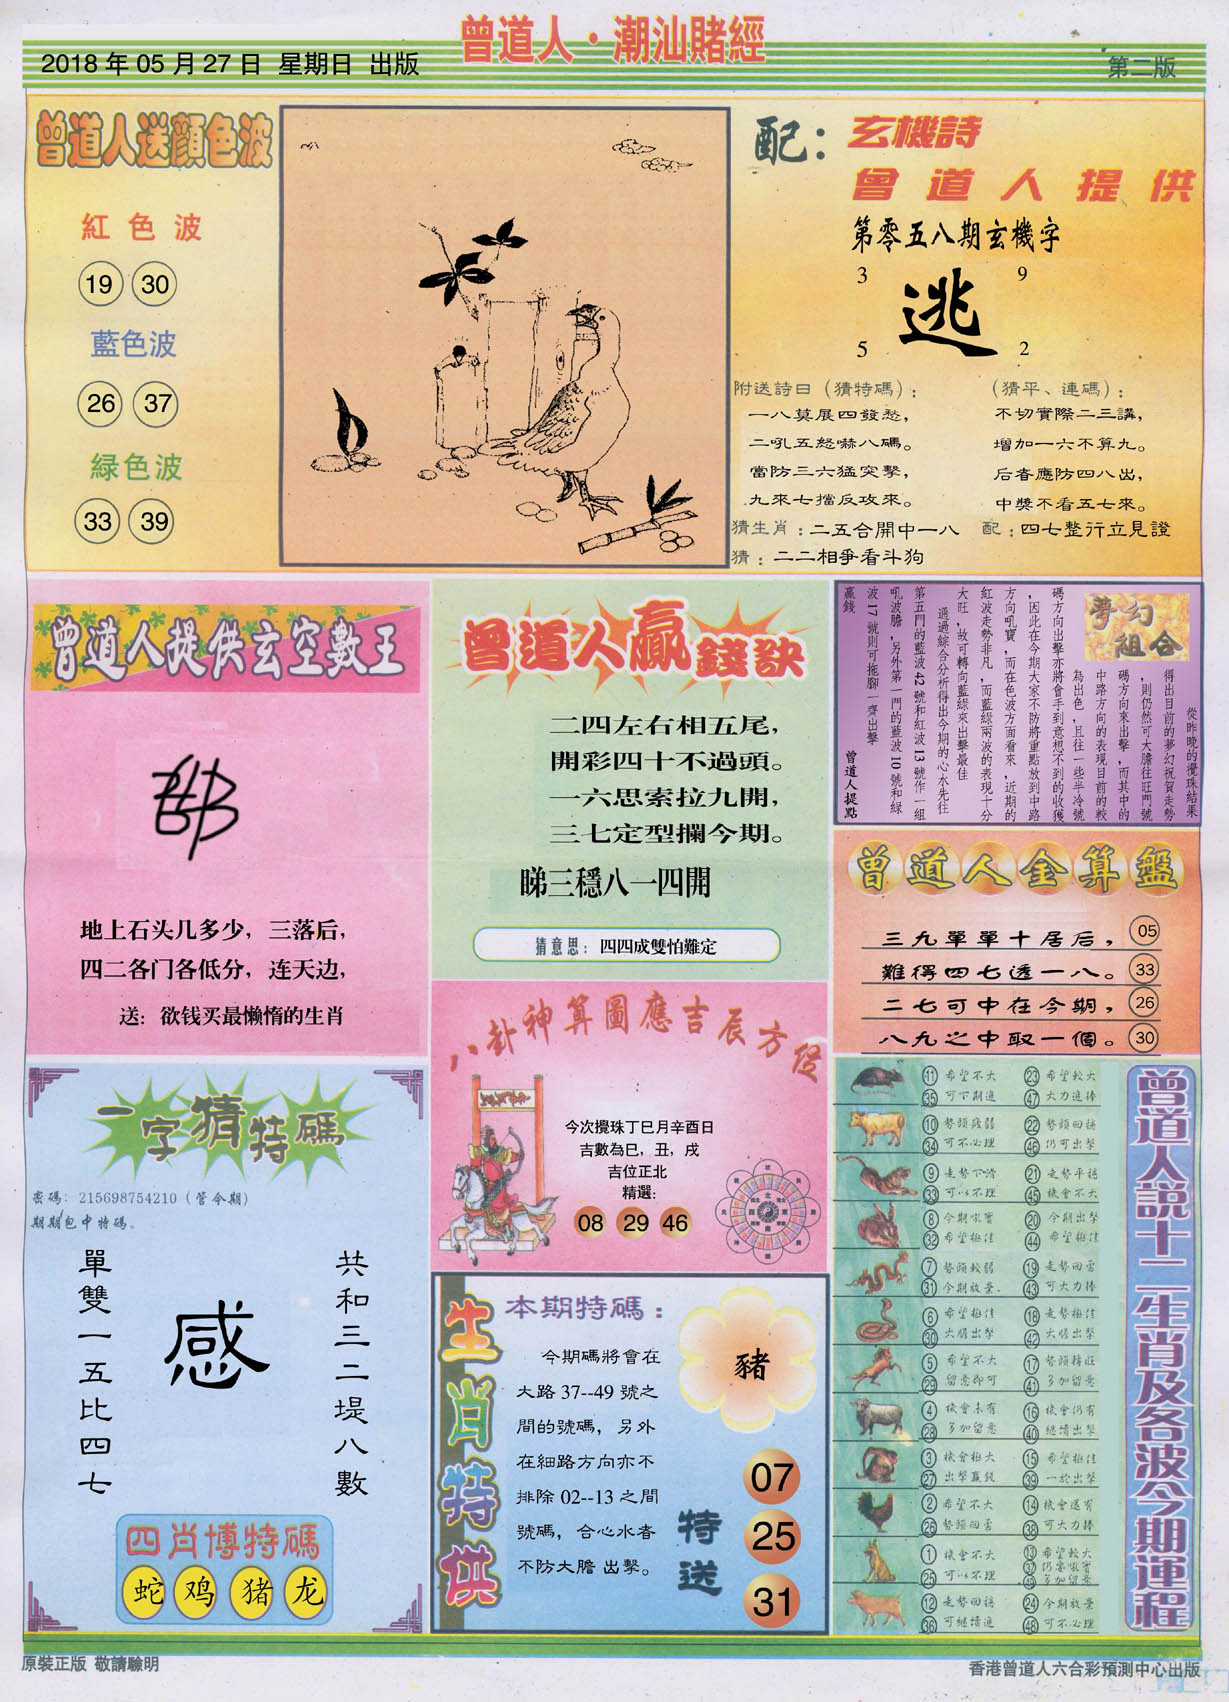 曾道人·潮汕賭經
2018年05月27日 星期日 出版
第二版
曾道人送顔色波
紅色波
19 30
藍色波
26 37
緑色波
33 39
配：玄機詩
曾道人提供
第零五八期玄機字
3 9
逃
5 2
附送詩曰（猜特碼）：
一八莫展四發愁，
二吼五怒嚇八碼。
當防三六猛突擊，
九來七擋反攻來。
（猜平、連碼）：
不切實際二三講，
增加一六不算九。
后者應防四八出，
中獎不看五七來。
猜生肖：二五合開中一八 配：四七整行立見證
猜：二二相爭看斗狗
曾道人提供玄空數王
地上石头几多少，三落后，
四二各门各低分，连天边，
送：欲钱买最懒惰的生肖
曾道人贏錢訣
二四左右相五尾，
開彩四十不過頭。
一六思索拉九開，
三七定型攔今期。
睇三穩八一四開
猜意思：四四成雙怕難定
夢幻組合
從昨晚的攪珠結果
得出目前的夢幻祝賀走勢
，則仍然可大膽往旺門號
碼方向來出擊，而其中的
中路方向的表現目前的較
為出色，且往一些半冷號
碼方向出擊亦將會手到意想不到的收獲
，因此在今期大家不防將重點放到中路
方向吼寶，而在色波方面看來，近期的
紅波走勢非凡，而藍綠兩波的表現十分
大旺，故可轉向藍綠來出擊最佳
通過綜合分析得出今期的心水先往
第五門的藍波42號和紅波13號作一組
吼波膽，另外第一門的藍波10號和綠
波17號則可拖腳一齊出擊
贏錢
曾道人提點
曾道人金算盤
三九單單十居后， 05
難得四七透一八。 33
二七可中在今期， 26
八九之中取一個。 30
一字猜特碼
密碼：215698754210（管今期）
期期包中特碼。
單雙一五比四七
感
共和三二堤八數
四肖博特碼
蛇 鸡 猪 龙
八卦神算圖應吉辰方位
今次攪珠丁巳月辛酉日
吉數為巳，丑，戌
吉位正北
精選：
08 29 46
生肖特供
本期特碼：
今期碼將會在
大路37--49號之
間的號碼，另外
在細路方向亦不
排除02--13之間
號碼，合心水者
不防大膽出擊。
豬
特送
07
25
31
曾道人説十二生肖及各波今期運程
11 希望不大 23 希望較大
35 可下期進 47 大力進棒
10 勢頭疲弱 22 勢頭回穩
34 可不必理 46 仍可出擊
9 走勢下滑 21 走勢平穩
33 可以不理 45 機會不大
8 今期吼寶 20 今期出擊
32 希望極佳 44 希望極佳
7 勢頭較弱 19 走勢回勇
31 今期放棄 43 可大力棒
6 希望極佳 18 走勢極佳
30 大膽出擊 42 大膽出擊
5 希望不大 17 勢頭轉旺
29 留意即可 41 多加留意
4 機會未有 16 機會仍有
28 多加留意 40 繼續出擊
3 機會極大 15 希望極佳
27 出擊贏錢 39 一於出擊
2 希望不大 14 機會還有
26 勢頭回勇 38 可大力棒
1 機會不大 13 希望較大
25 可以不理 37 仍要吼寶
49 多加留意
12 走勢回穩 24 今期放棄
36 可繼續進 48 可不必理
原裝正版 敬請驗明
香港曾道人六合彩預測中心出版